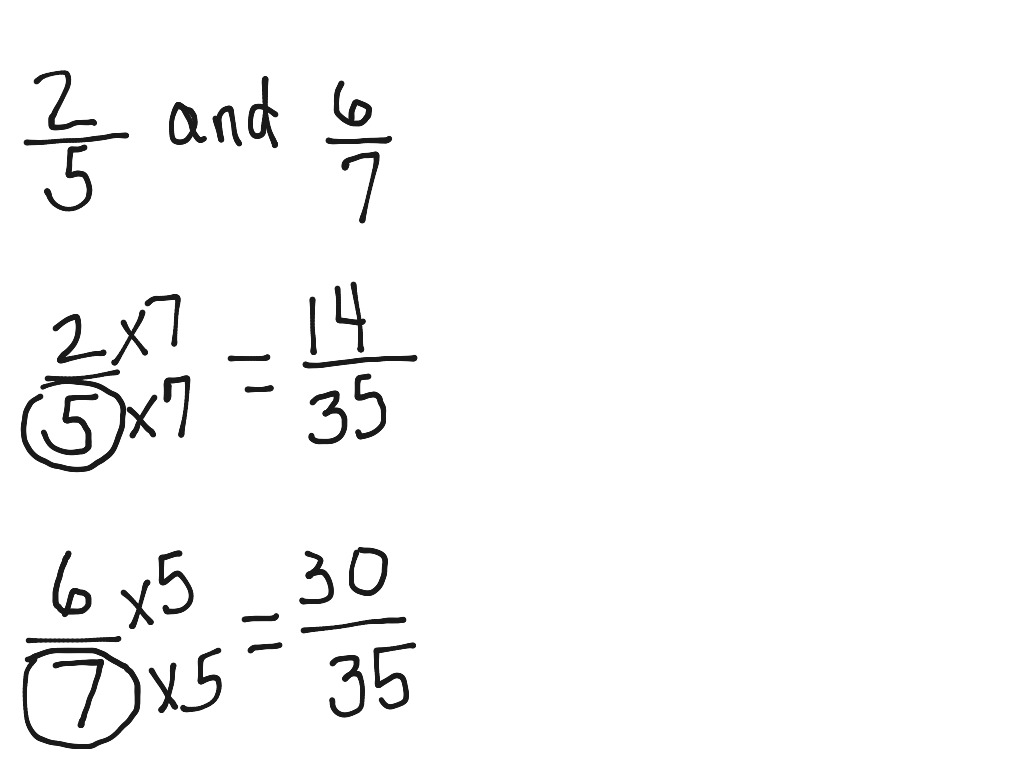 2/5 and 6/7
2x7/5x7 = 14/35
6x5/7x5 = 30/35